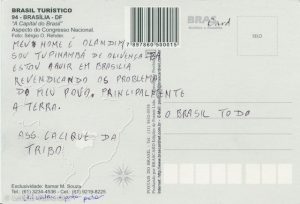 BRASIL TURÍSTICO
94 - BRASÍLIA - DF
"A Capital do Brasil"
Aspecto do Congresso Nacional.
Foto: Sérgio O. Rehder.
7 897860 500815
BRAS Card
SELO
MEU NOME É
SOU TUPINAMBÁ DE OLIVENÇA BA
ESTOU AQUI EM BRASILIA
REVENDICANDO OS PROBLEMA
DO MEU POVO, PRINCIPALMENTE
A TERRA.
O BRASIL TODO
ASS. CACIQUE DA
TRIBO.
Exclusividade: Itamar M. Souza
Tel.: (61) 3234-4536 - Cel.: (61) 9219-8225